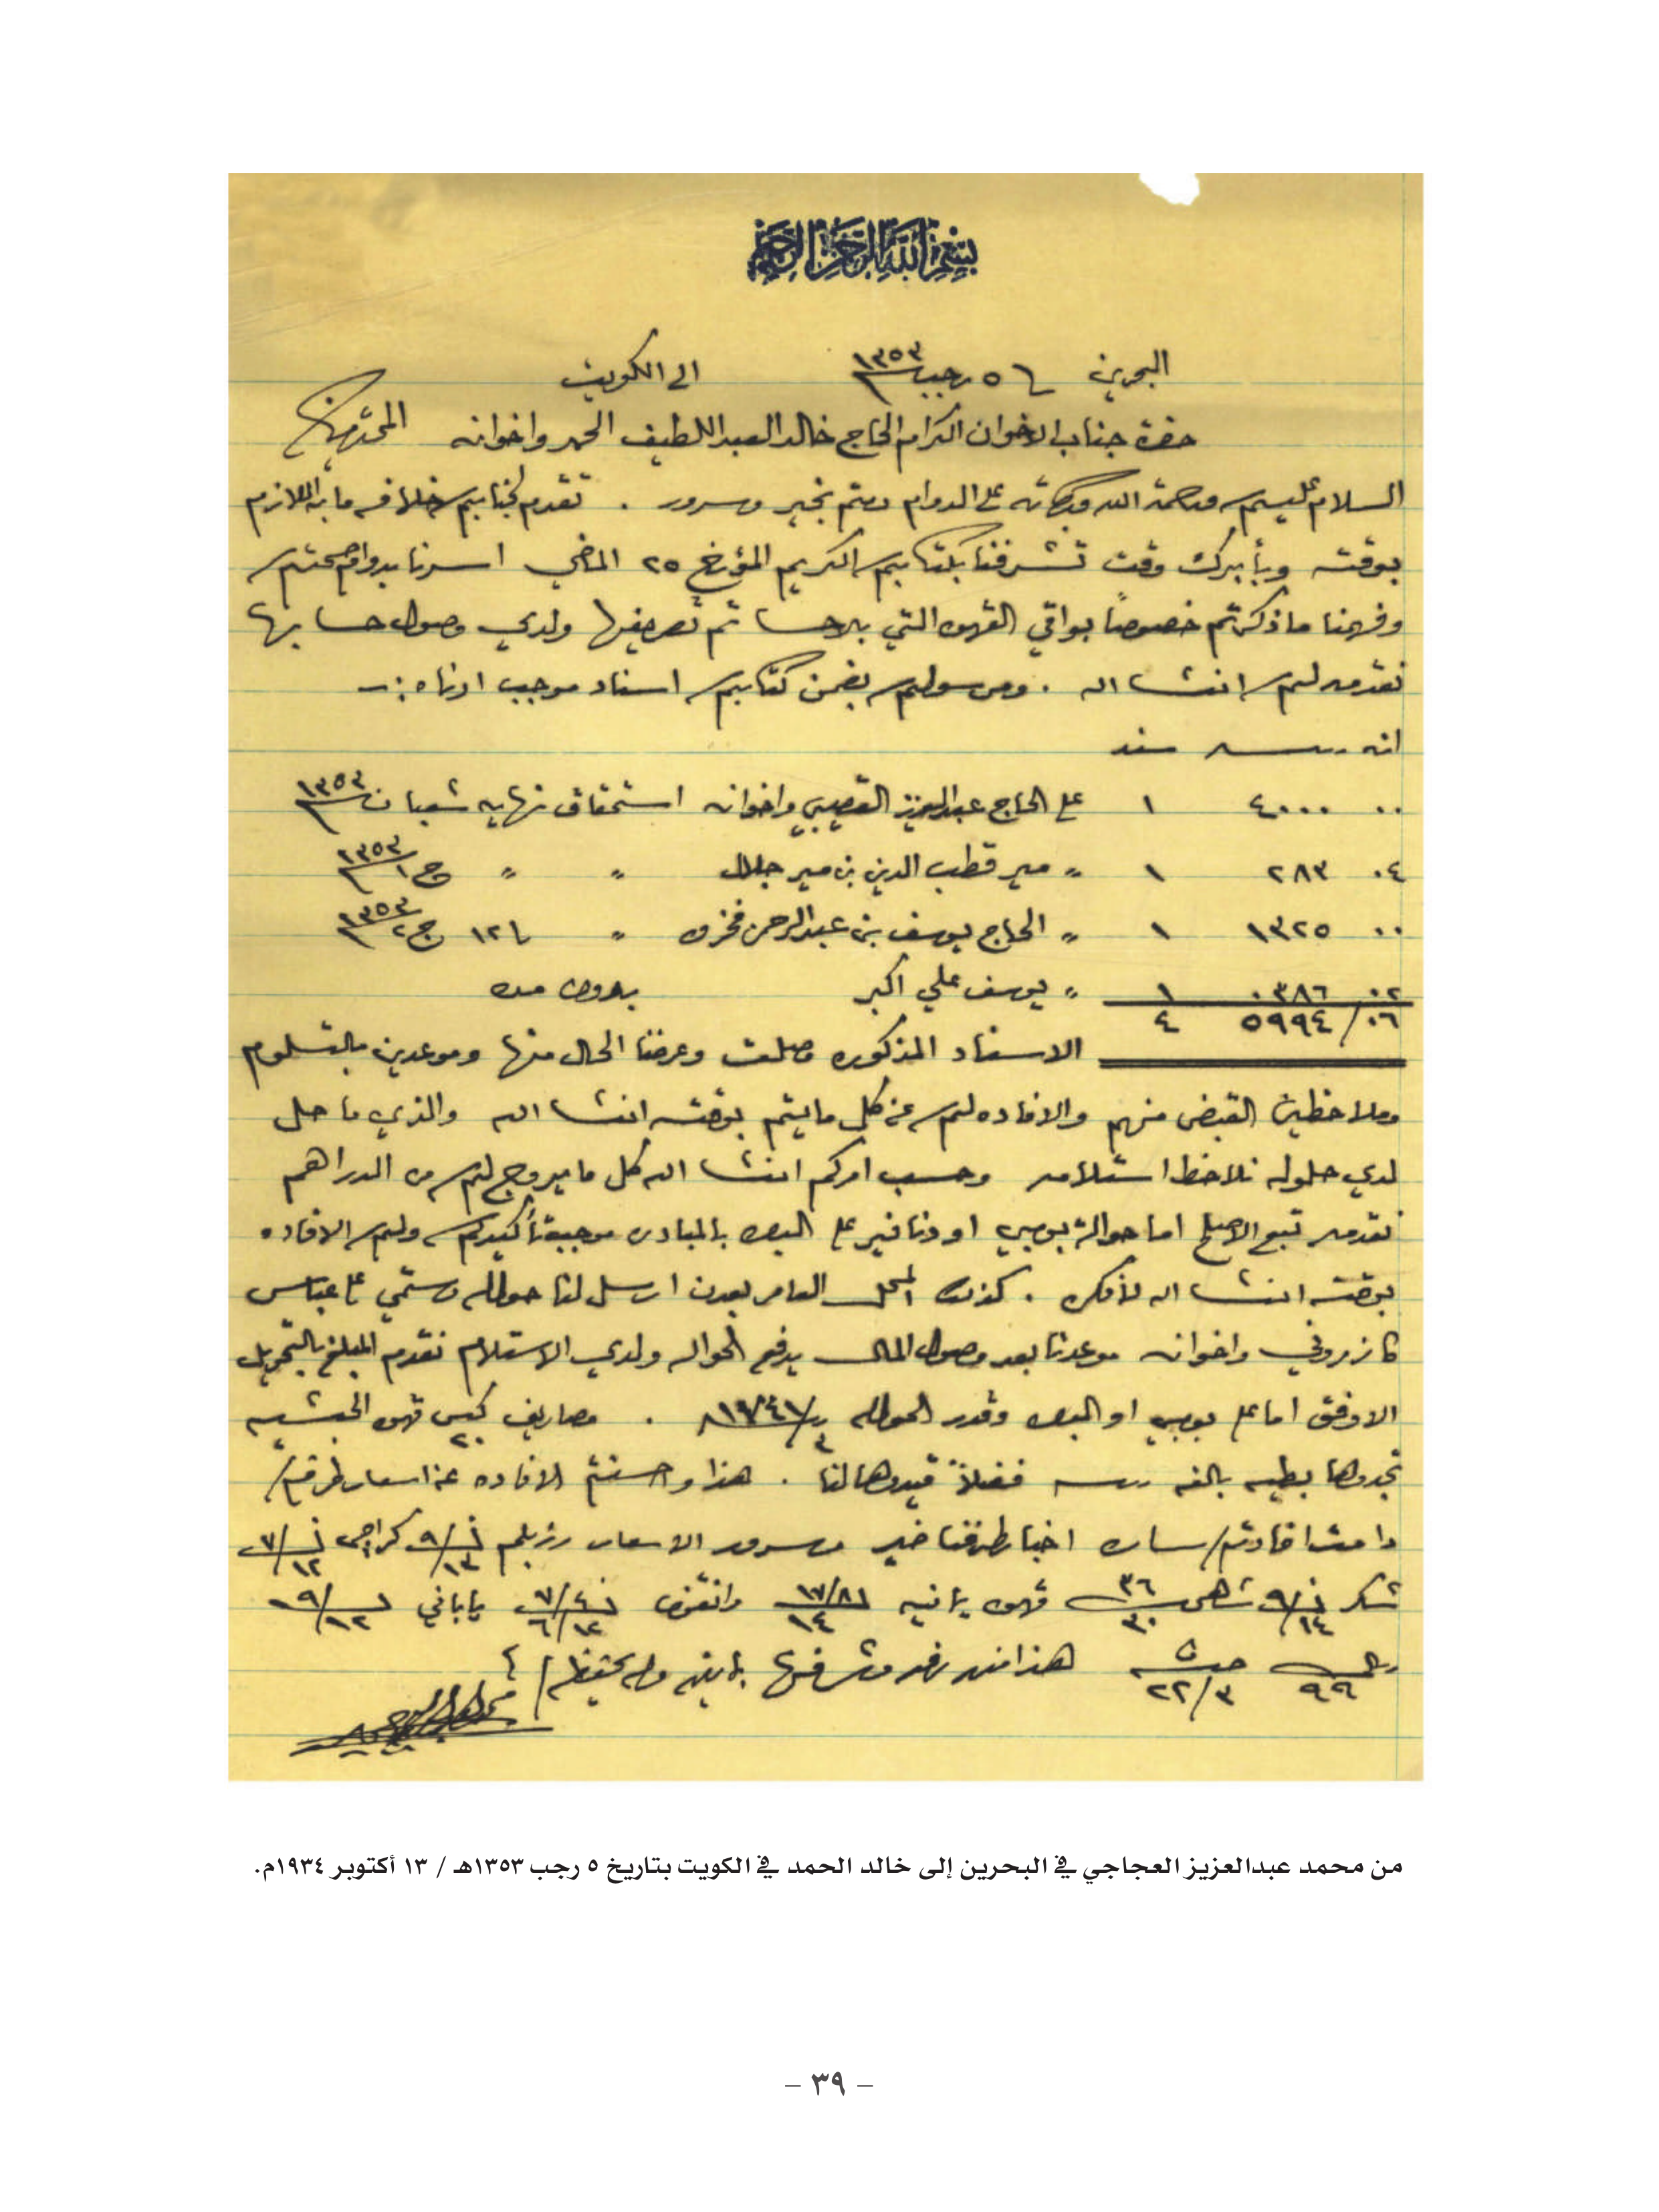 بسم الله الرحمن الرحيم
البحرين ٥ رجب ١٣٥٣ الى الكويت
حضرة جناب الاخوان الكرام الحاج خالد العبداللطيف الحمد واخوانه المحترمين
السلام عليكم ورحمة الله وبركاته على الدوام دمتم بخير وسرور . تقدم لجنابكم خلافه ما به اللازم
بوقته وبأبرك وقت تشرفنا بكتابكم الكريم المؤرخ ٢٥ الماضي اسرنا بدوام صحتكم
وفهمنا ما ذكرتم خصوصاً بواقي القهوه التي بالاحسا تم تصريفها ولدى وصول حسابها
نقدمه لكم انشا الله . ومرسولكم بضمن كتابكم اسناد موجب ادناه :ــ
انه ربيه سند
٠٠ ٤٠٠٠ ١ على الحاج عبدالعزيز القصيبي واخوانه استحقاق نهايه شعبان ١٣٥٣
٠٤ ٢٨٣ ١ " مير قطب الدين بن مير جلال " " ج١ ١٣٥٣
٠٠ ١٣٢٥ ١ " الحاج يوسف بن عبدالرحمن فخرو " ١٢ ج٢ ١٣٥٣
٠٢ ٠٣٨٦ ١ " يوسف علي اكبر بدون مده
٠٦/ ٥٩٩٤ ٤
الاسناد المذكوره وصلت وعرضنا الحال منها وموعدين بالتسلوم
وملاحظين القبض منهم والافاده لكم عن كل ما يتم بوقته انشا الله والذي ما حل
لدى حلوله نلاحظ استلامه وحسب امركم انشا الله كل ما يروج لكم من الدراهم
نقدمه تبع الاصلح اما حوالة بومبي او دنافير على البصره بالمبادره موجب تأكيدكم ولكم الافاده
بوقته انشا الله لا فكره . كذلك المحل العامر بعدن ارسل لنا حواله رستمي على عباس
كازروني واخوانه موعدنا بعد وصول المال يدفع الحواله ولدى الاستلام نقدم المبلغ بالتحويل
الاوفق اما على بومبي او البصره وقدر الحواله . مصاريف ٢٠ كيس قهوه الحبشيه
تجدوها بطيه بالفه ربيه فضلاً قيدوها لنا . هذا واحسنتم الافاده عن اسعار طرفكم
دامت افادتكم ساره اخبار طرفنا خير وسرور الاسعار كراچي
شكر ٣٦ ٣٠ قهوه يمانيه ١٤ ياباني
ريال ٩٩ ٢٢/٣ هذا منه
من محمد عبدالعزيز العجاجي في البحرين إلى خالد الحمد في الكويت بتاريخ ٥ رجب ١٣٥٣هـ / ١٣ أكتوبر ١٩٣٤م.
– ٣٩ –